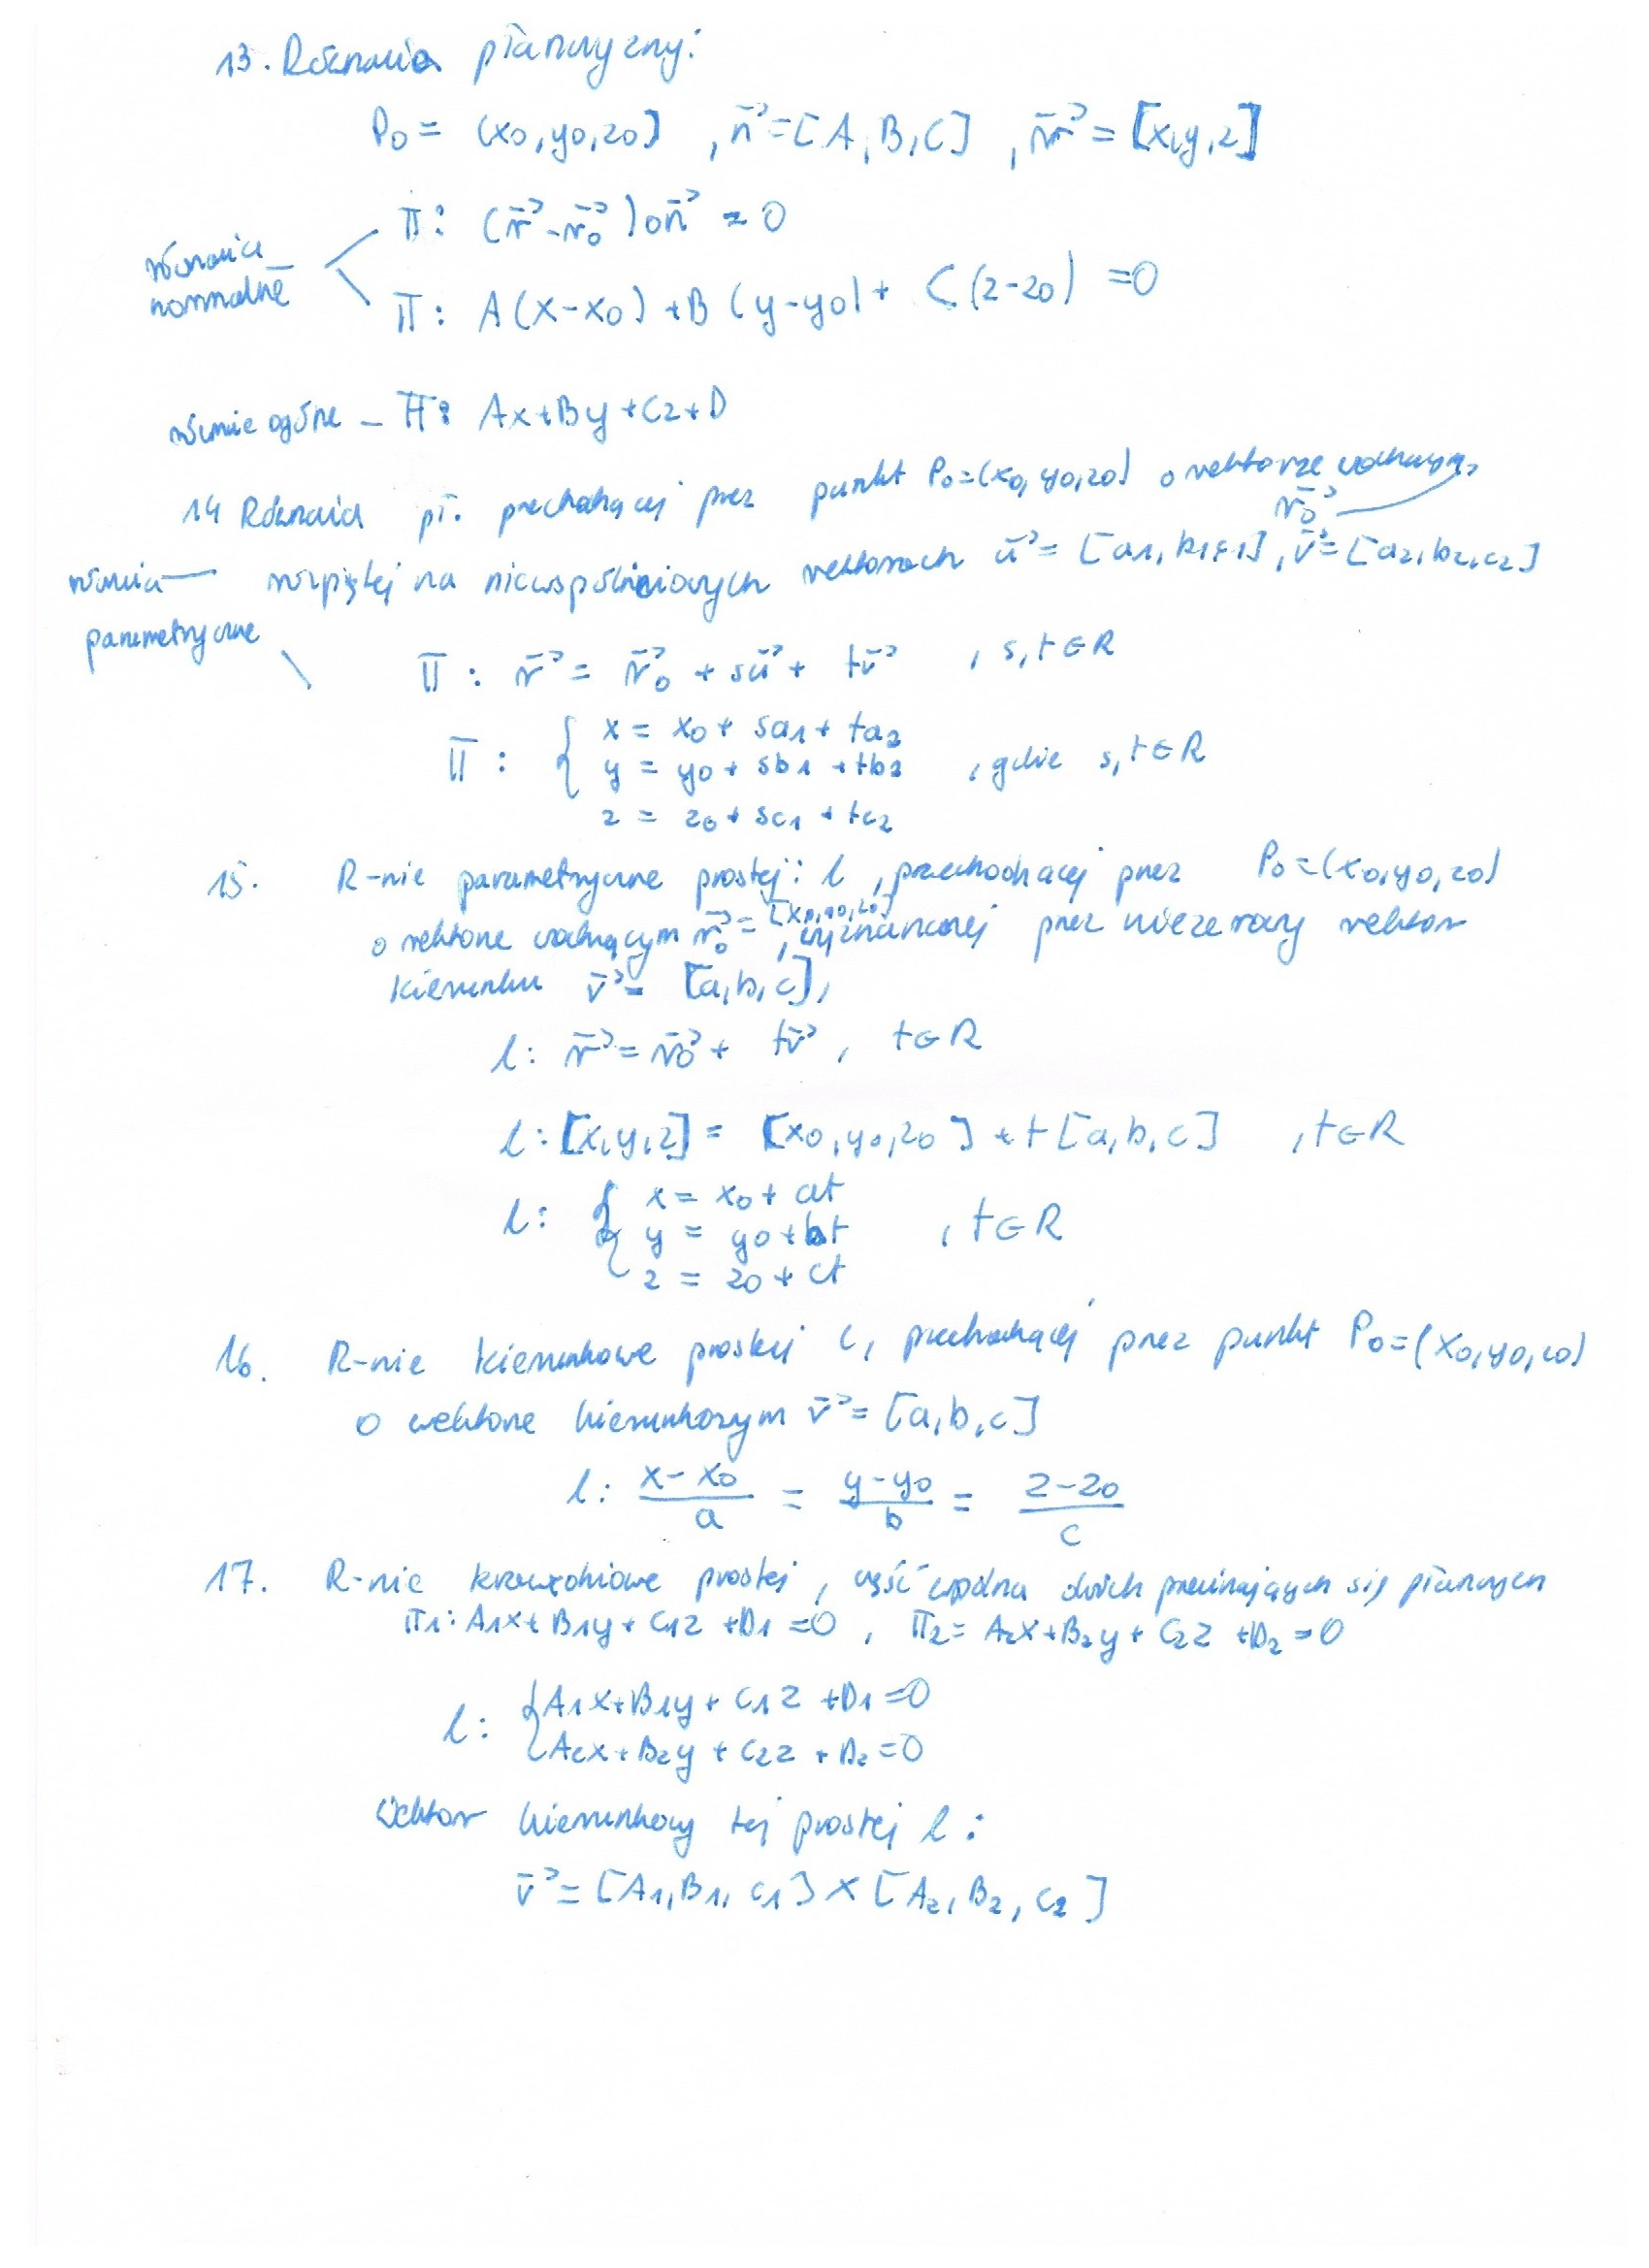 13. Równania płaszczyzny:
P0 = (x0, y0, z0) , n⃗ = [A, B, C] , r⃗ = [x, y, z]
π: (r⃗ - r⃗0) ∘ n⃗ = 0
równania
normalne
π: A(x-x0) + B(y-y0) + C(z-z0) = 0
równie ogólne – π: Ax+By+Cz+D
14 Równania pł. przechodzącej przez punkt P0=(x0, y0, z0) o wektorze wodzącym
r⃗0
równania rozpiętej na niewspółliniowych wektorach u⃗ = [a1, b1, c1], v⃗ = [a2, b2, c2]
parametryczne
π: r⃗ = r⃗0 + su⃗ + tv⃗ , s, t ∈ R
π: { x = x0 + sa1 + ta2
y = y0 + sb1 + tb2 , gdzie s, t ∈ R
z = z0 + sc1 + tc2
15. R-nie parametryczne prostej: l , przechodzącej przez P0 = (x0, y0, z0)
o wektorze wodzącym r⃗0 = [x0, y0, z0] , wyznaczonej przez niezerowy wektor
kierunku v⃗ = [a, b, c],
l: r⃗ = r⃗0 + tv⃗ , t ∈ R
l: [x, y, z] = [x0, y0, z0] + t[a, b, c] , t ∈ R
l: { x = x0 + at
y = y0 + bt , t ∈ R
z = z0 + ct
16. R-nie kierunkowe prostej l, przechodzącej przez punkt P0 = (x0, y0, z0)
o wektorze kierunkowym v⃗ = [a, b, c]
l: (x-x0)/a = (y-y0)/b = (z-z0)/c
17. R-nie krawędziowe prostej, część wspólna dwóch przecinających się płaszczyzn
π1: A1x+B1y+C1z+D1=0 , π2= A2x+B2y+C2z+D2=0
l: { A1x+B1y+C1z+D1=0
A2x+B2y+C2z+D2=0
Wektor kierunkowy tej prostej l:
v⃗ = [A1, B1, C1] × [A2, B2, C2]